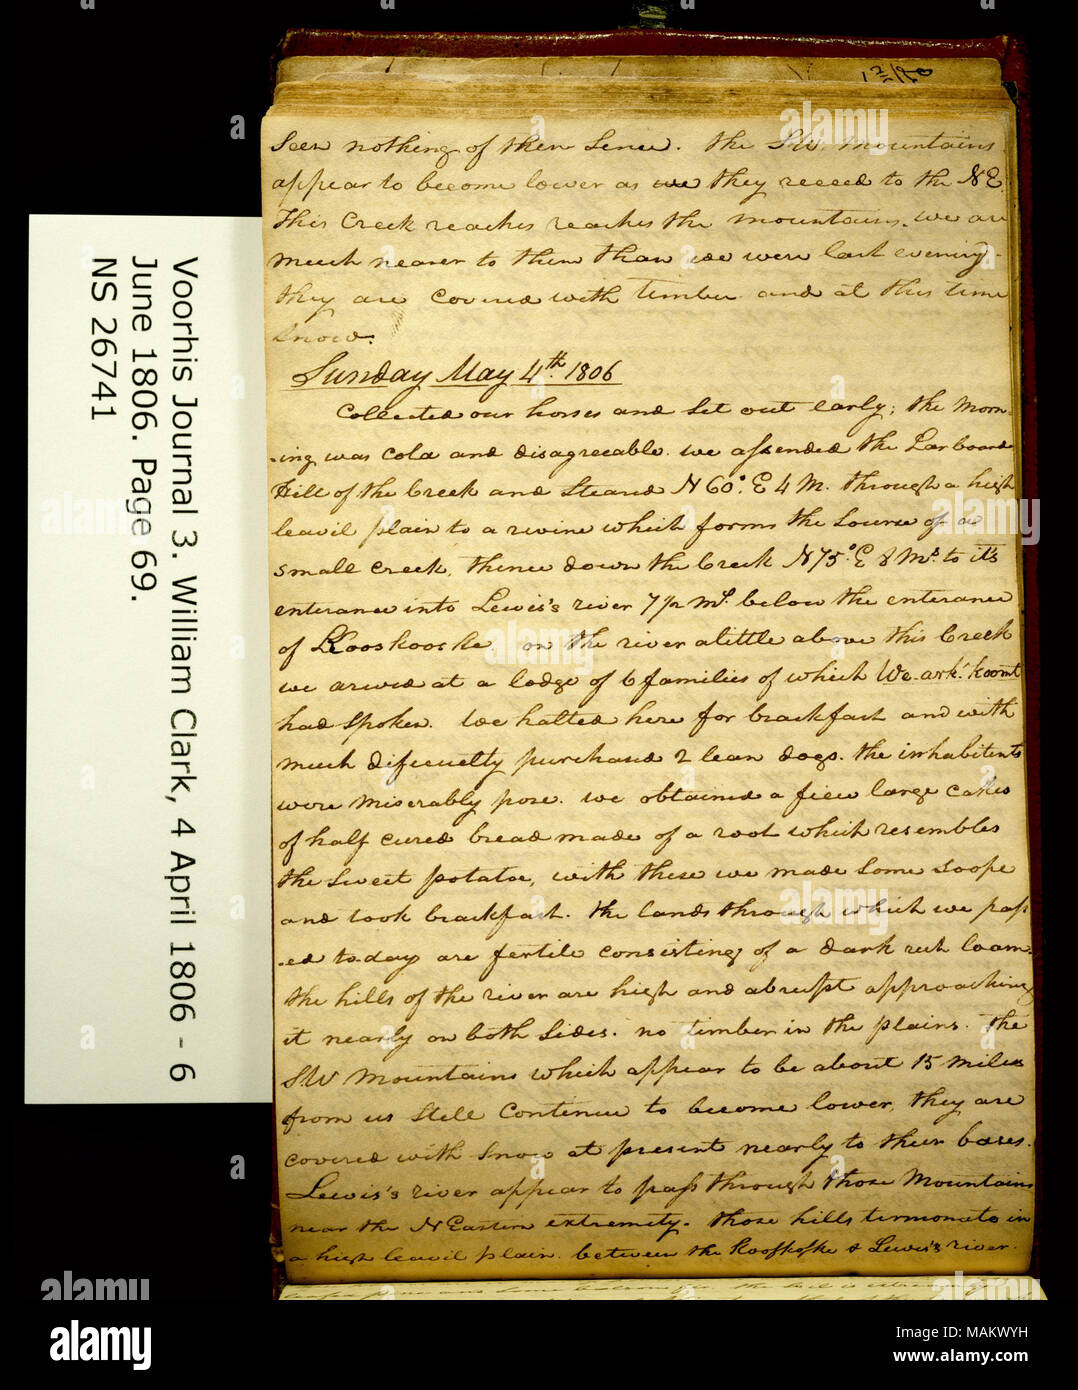 Voorhis Journal 3. William Clark, 4 April 1806 - 6
June 1806. Page 69.
NS 26741
Seen nothing of them Sence. the S.W. Mountains
appear to become lower as we they receed to the N E.
This Creek reaches reaches the mountains. we are
much nearer to them than we were last evening.
they are Covered with timber and at this time
Snow.
Sunday May 4th. 1806
Collected our horses and Set out early; the morn-
-ing was Cold and disagreeable. we assended the Larboard
Hill of the Creek and Steared N 60°. E 4 M. through a high
leavil plain to a rivine which forms the Source of a
small Creek, thence down the Creek N 75°. E 8 Ms. to it's
enterance into Lewis's river 7½ ms. below the enterance
of Kooskooske. on the river a little above this Creek
we arived at a lodge of 6 families of which We-ark'-koomt
had Spoken. We halted here for brackfast and with
much difucuelty purchased 2 lean dogs. the inhabitents
were miserably pore. we obtained a fiew large cakes
of half cured bread made of a root which resembles
the Sweet potatoe, with these we made Some Soope
and took brackfast. the lands through which we pass
-ed to-day are fertile consisting of a dark rich loam.
the hills of the river are high and abrupt approaching
it nearly on both Sides. no timber in the plains. The
S.W Mountains which appear to be about 15 miles
from us Still Continue to become lower, they are
covered with Snow at present nearly to their bases.
Lewis's river appear to pass through those Mountains
near the N Eastern extremity. those hills termonate in
a high leavil plain between the Kooskoske & Lewis's river.
a alamy
alamy
Image ID: MAKWYH
www.alamy.com